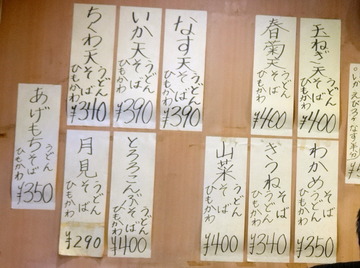 玉ねぎ天そば
うどん
ひもかわ
¥400
春菊天そば
うどん
ひもかわ
¥400
なす天そば
うどん
ひもかわ
¥390
いか天そば
うどん
ひもかわ
¥390
ちくわ天そば
うどん
ひもかわ
¥340
わかめそば
うどん
ひもかわ
¥350
きつねそば
うどん
ひもかわ
¥340
山菜そば
うどん
ひもかわ
¥400
とろろこんぶそば
うどん
ひもかわ
¥400
月見そば
うどん
ひもかわ
¥290
あげもちそば
うどん
ひもかわ
¥350